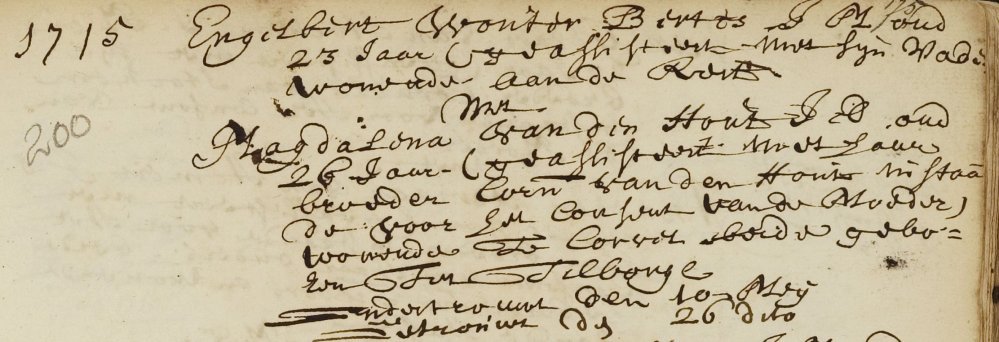 1715 Engelbert Wouter Bertes J M oud
23 Jaar (geassisteert met sijn Vader
wonende aan de Kerk
Met
200
Magdalena van den Hout J D oud
26 Jaar (geassisteert met haar
broeder Corn van den Hout instaā
de voor het Consent van de Moeder)
wonende Te Corvel beide gebo=
ren Tot Tilborgh
Ondertrouwt den 10 Mey
Getrouwt den 26 dito